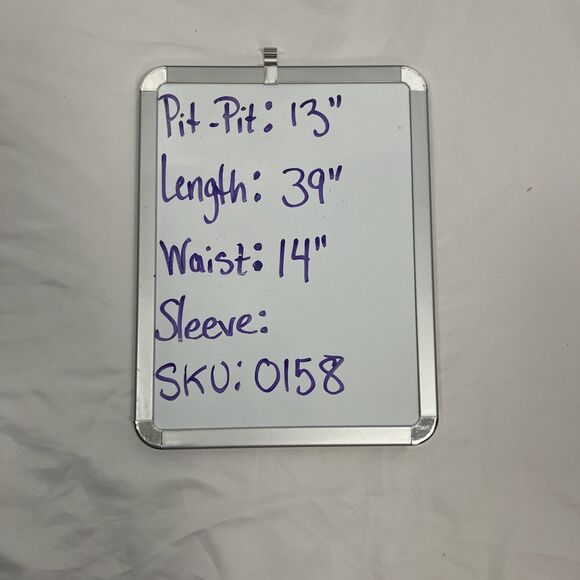 Pit-Pit: 13"
Length: 39"
Waist: 14"
Sleeve:
SKU: 0158